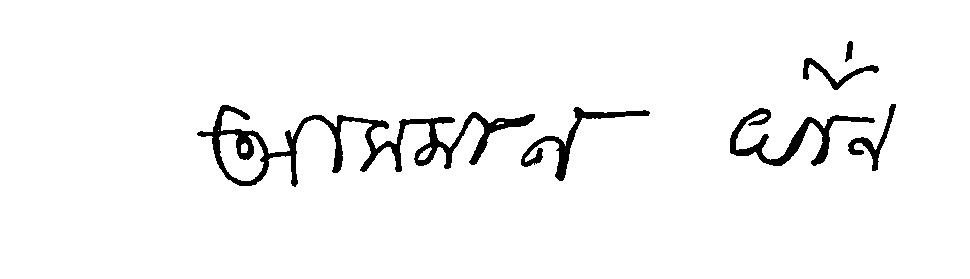 আসমান খাঁন